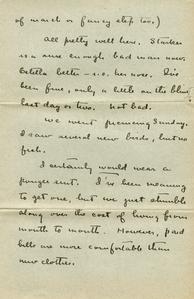 of march or fancy step too.)
All pretty well here. Starker
is a sure enough bad man now.
better - i.e. her nose. I've
been fine, only a little on the blink
last day or two. Not bad.
We went picnicing Sunday.
I saw several new birds, but no
fish.
I certainly would wear a
suit. I've been meaning
to get one, but we just stumble
along over the cost of living from
month to month. However, paid
bills are more comfortable than
new clothes.